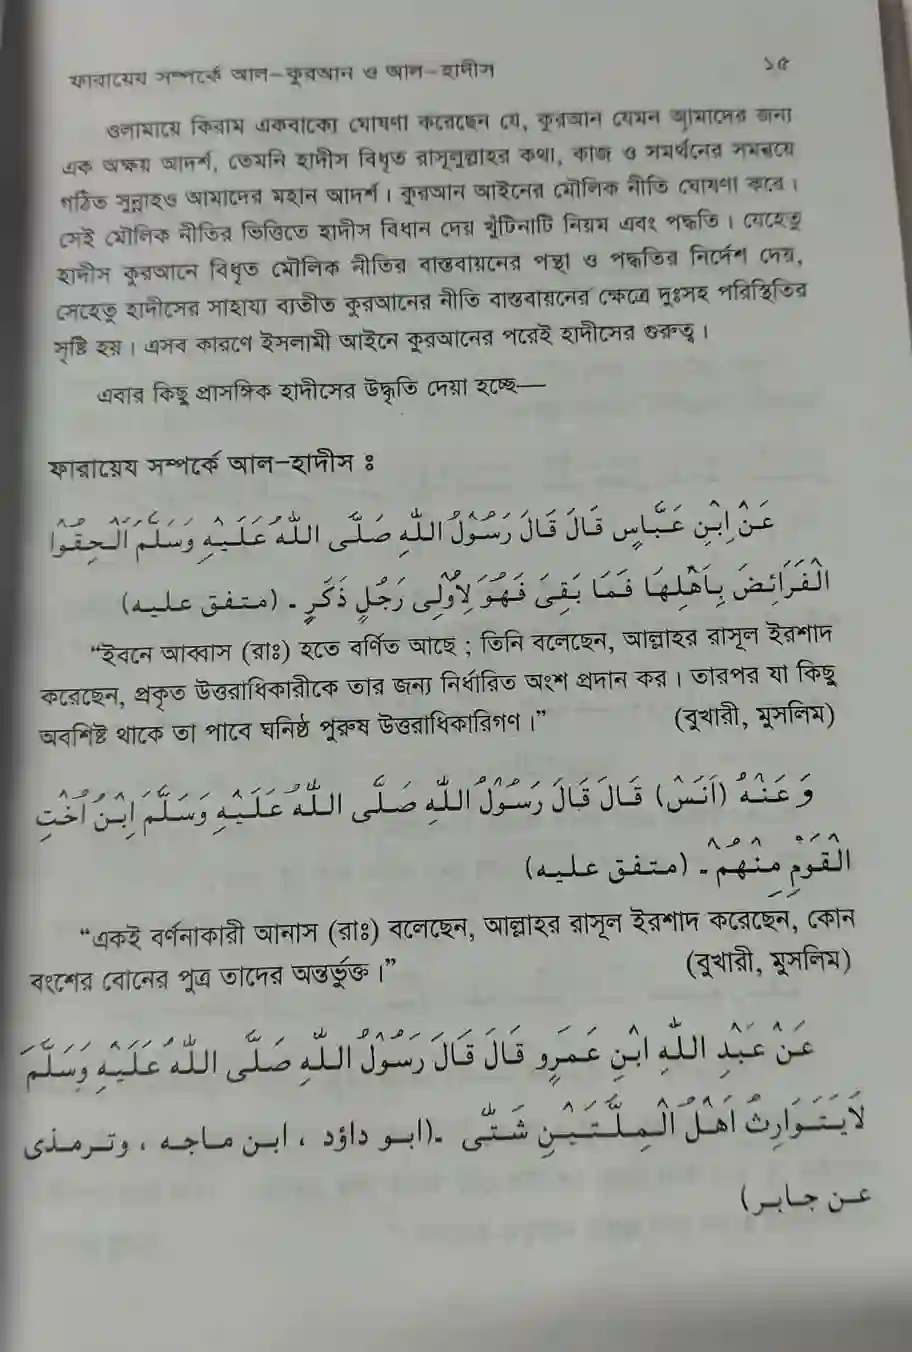 ফারায়েয সম্পর্কে আল-কুরআন ও আল-হাদীস ১৫
ওলামায়ে কিরাম একবাক্যে ঘোষণা করেছেন যে, কুরআন যেমন আমাদের জন্য
এক অক্ষয় আদর্শ, তেমনি হাদীস বিধৃত রাসূলুল্লাহর কথা, কাজ ও সমর্থনের সমন্বয়ে
গঠিত সুন্নাহও আমাদের মহান আদর্শ। কুরআন আইনের মৌলিক নীতি ঘোষণা করে।
সেই মৌলিক নীতির ভিত্তিতে হাদীস বিধান দেয় খুঁটিনাটি নিয়ম এবং পদ্ধতি। যেহেতু
হাদীস কুরআনে বিধৃত মৌলিক নীতির বাস্তবায়নের পন্থা ও পদ্ধতির নির্দেশ দেয়,
সেহেতু হাদীসের সাহায্য ব্যতীত কুরআনের নীতি বাস্তবায়নের ক্ষেত্রে দুঃসহ পরিস্থিতির
সৃষ্টি হয়। এসব কারণে ইসলামী আইনে কুরআনের পরেই হাদীসের গুরুত্ব।
এবার কিছু প্রাসঙ্গিক হাদীসের উদ্ধৃতি দেয়া হচ্ছে—
ফারায়েয সম্পর্কে আল-হাদীস ঃ
عَنْ اِبْنِ عَبَّاسٍ قَالَ قَالَ رَسُوْلُ اللّٰهِ صَلَّى اللّٰهُ عَلَيْهِ وَسَلَّمَ اَلْحِقُوْا
الْفَرَائِضَ بِاَهْلِهَا فَمَا بَقِىَ فَهُوَ لِاُوْلٰى رَجُلٍ ذَكَرٍ ـ (متفق عليه)
“ইবনে আব্বাস (রাঃ) হতে বর্ণিত আছে ; তিনি বলেছেন, আল্লাহর রাসূল ইরশাদ
করেছেন, প্রকৃত উত্তরাধিকারীকে তার জন্য নির্ধারিত অংশ প্রদান কর। তারপর যা কিছু
অবশিষ্ট থাকে তা পাবে ঘনিষ্ঠ পুরুষ উত্তরাধিকারিগণ।” (বুখারী, মুসলিম)
وَ عَنْهُ (اَنَسْ) قَالَ قَالَ رَسُوْلُ اللّٰهِ صَلَّى اللّٰهُ عَلَيْهِ وَسَلَّمَ اِبْنُ اُخْتِ
الْقَوْمِ مِنْهُمْ ـ (متفق عليه)
“একই বর্ণনাকারী আনাস (রাঃ) বলেছেন, আল্লাহর রাসূল ইরশাদ করেছেন, কোন
বংশের বোনের পুত্র তাদের অন্তর্ভুক্ত।” (বুখারী, মুসলিম)
عَنْ عَبْدِ اللّٰهِ ابْنِ عَمَرٍو قَالَ قَالَ رَسُوْلُ اللّٰهِ صَلَّى اللّٰهُ عَلَيْهِ وَسَلَّمَ
لَايَتَوَارِثُ اَهْلُ الْمِلَّتَيْنِ شَتّٰى ـ(ابو داؤد ، ابن ماجه ، وترمذى
عن جابر)